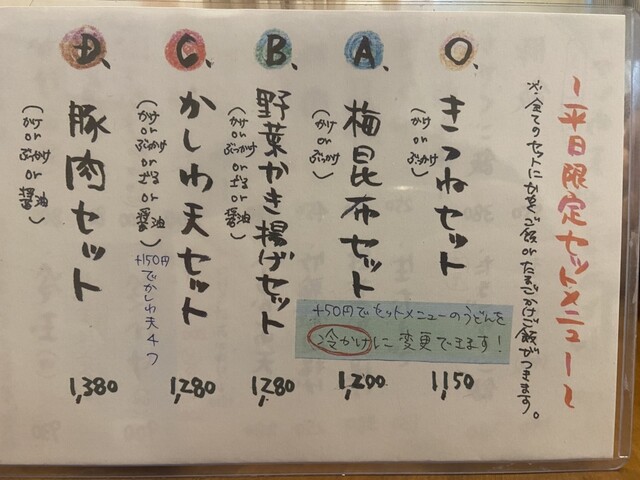 ～平日限定セットメニュー～
※全てのセットにかやくご飯orたまごかけご飯がつきます。
O、きつねセット
(かけorぶっかけ)
1,150
A、梅昆布セット
(かけorぶっかけ)
1,200
B、野菜かき揚げセット
(かけorぶっかけorざるor醤油)
1,280
C、かしわ天セット
(かけorぶっかけorざるor醤油)
+150円でかしわ天4つ
1,280
D、豚肉セット
(かけorぶっかけor醤油)
1,380
+50円でセットメニューのうどんを
冷かけに変更できます!